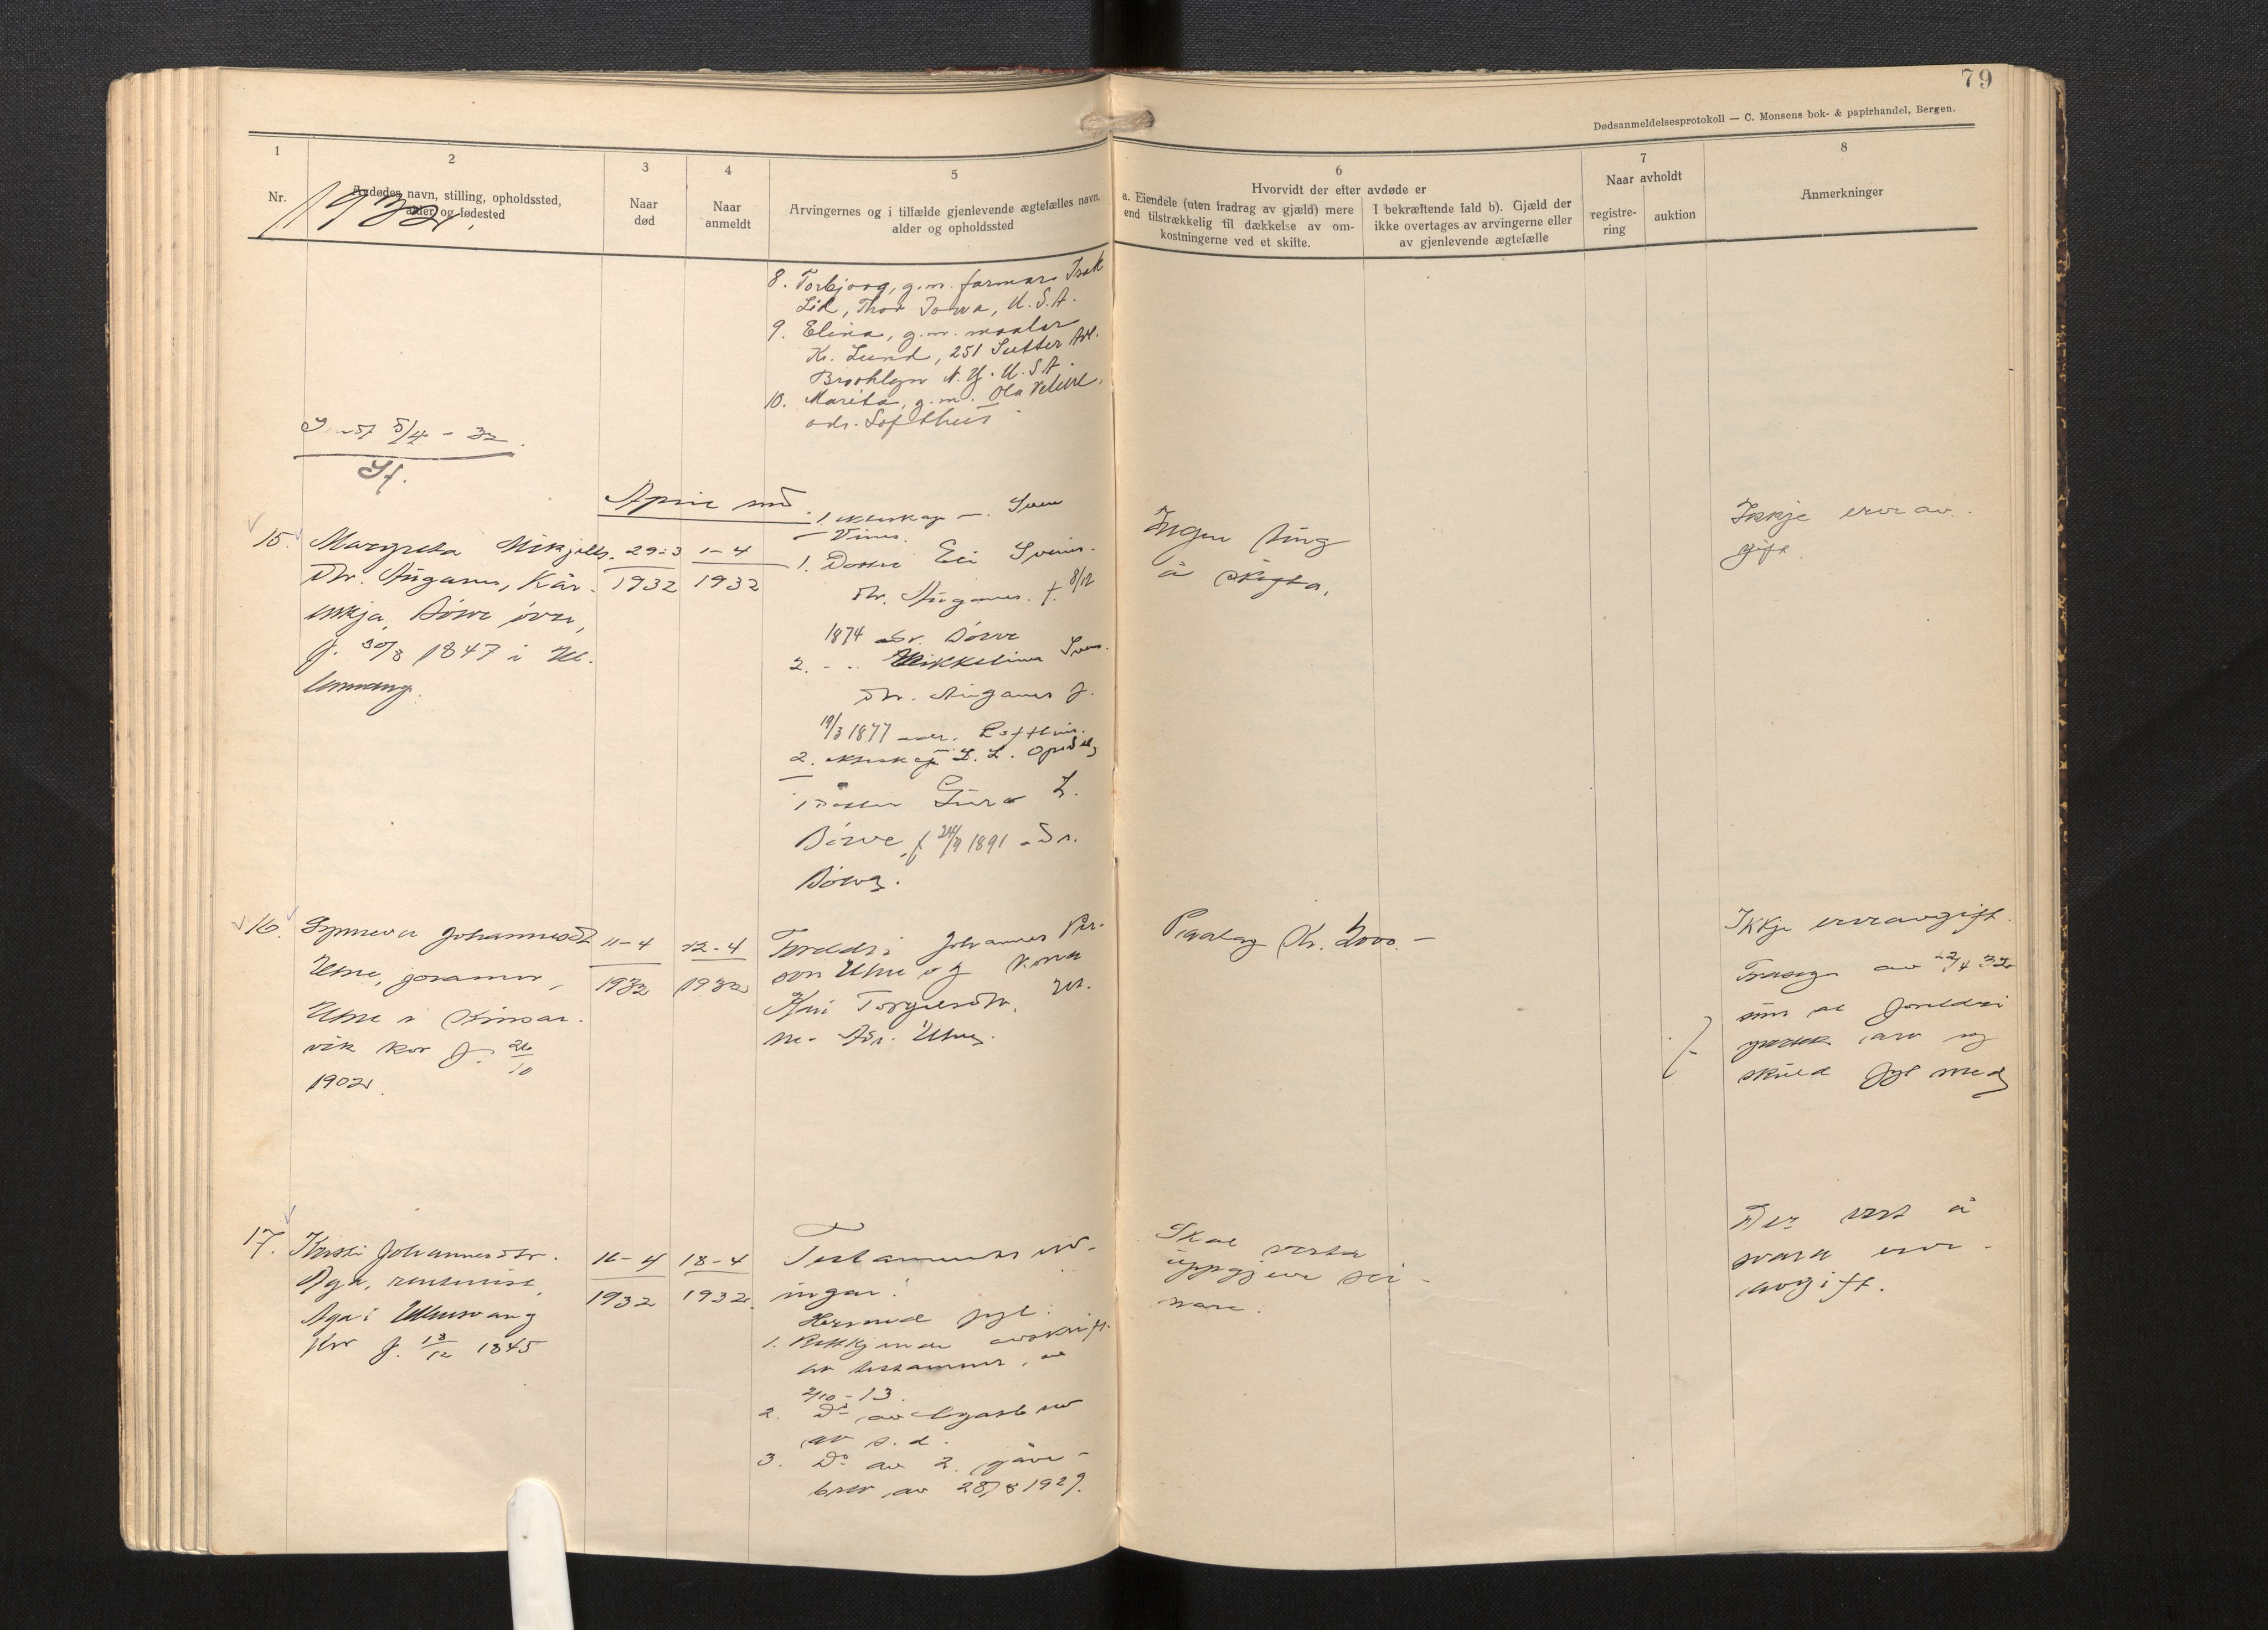 79
Dødsanmeldelsesprotokoll — C. Monsens bok- & papirhandel, Bergen.
1
Nr.
2
Avdødes navn, stilling, opholdssted,
alder og fødested
1932.
3
Naar
død
4
Naar
anmeldt
5
Arvingernes og i tilfælde gjenlevende ægtefælles navn,
alder og opholdssted
6
Hvorvidt der efter avdøde er
a. Eiendele (uten fradrag av gjæld) mere
end tilstrækkelig til dækkelse av om-
kostningerne ved et skifte.
I bekræftende fald b). Gjæld der
ikke overtages av arvingerne eller
av gjenlevende ægtefælle
7
Naar avholdt
registre-
ring
auktion
8
Anmerkninger
8. Torbjørg, g.m. farmar Isak
Lid, Thor Iowa, U.S.A.
9. Elina, g.m. maalar
Kr. Lund, 251 Sutter Ave.
Brooklyn N.Y. U.S.A.
10. Marita, g.m. Ola
adr. Lofthus
5/4 - 32.
April
15. Margreta Mikjels-
dtr. Auganes, Kår-
enkja, Börve övre,
f. 30/8 1847 i Ul-
lensvang.
29-3
1932
1-4
1932
1. ekteskap m. Svein
Vines.
1. Dotter Eli Sveins-
dtr. Auganes f. 8/12
1874 adr. Börve
2. - .. Mikkelina Sveins-
dtr. Auganes f.
19/3 1877 adr. Lofthus.
2. ekteskap m. L. L. Opedal,
1 Dotter Guro L.
Börve, f 24/9 1891 adr.
Börve.
Ingen ting
å skifta.
Ikkje ervav-
gift.
16. Synneva Johannesdt
Utne, jordmor,
Utne i Kinsar-
vik kor f. 26/10
1902.
11-4
1932
12-4
1932
Foreldri Johannes Per-
son Utne og kona
Kari Torgilsdtr. Ut-
ne. Adr. Utne.
Pårekna Kr. 2000.-
Ikkje ervavgift.
av 22/4 32
um at foreldri
arv og
skuld fyl med
17. Kristi Johannesdtr.
Aga, rentenist,
Aga i Ullensvang
f. 13/12 1845
16-4
1932
18-4
1932
Testaments erv-
ingar:
Hermed fyl:
1. avskrift
av testament, av
2/10-13.
2. Do av legatbrev
av s.d.
3. Do av 2 gåve-
brev av 28/8 1929.
Skal verta
uppgjeve sei-
nare.
Det vert å
svara erv-
avgift.